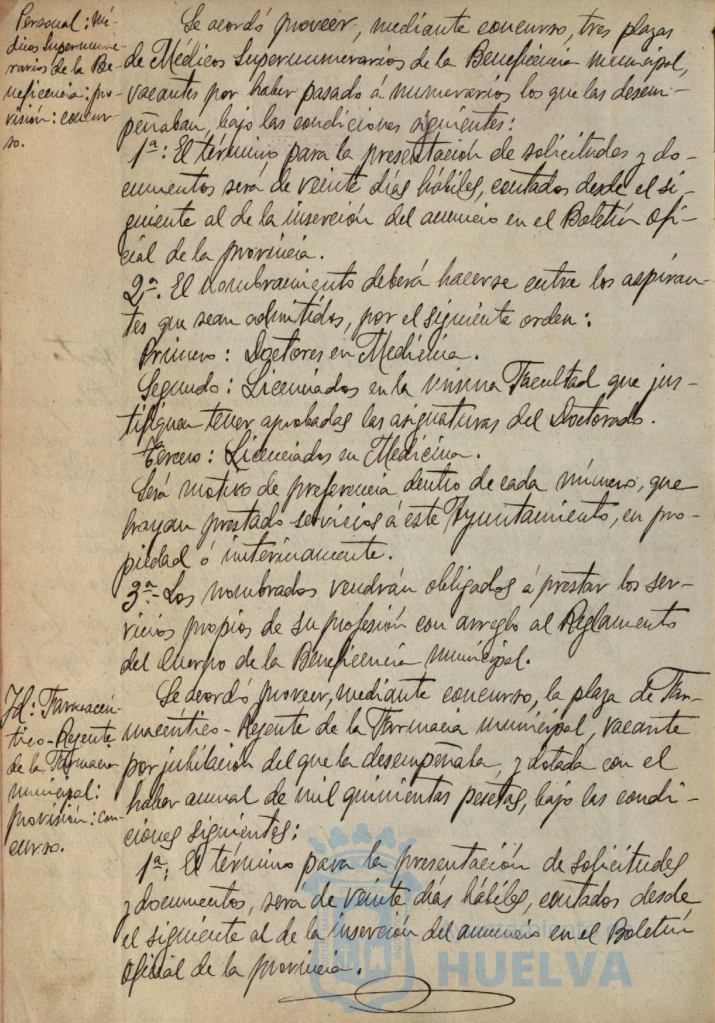 Personal: Mé-
dicos Supernume-
rarios de la Be-
neficencia: pro-
visión: concur-
so.
Se acordó proveer, mediante concurso, tres plazas
de Médicos Supernumerarios de la Beneficencia municipal,
vacantes por haber pasado á numerarios los que las desem-
peñaban, bajo las condiciones siguientes:
1ª: El término para la presentación de solicitudes y do-
cumentos será de veinte días hábiles, contados desde el si-
guiente al de la inserción del anuncio en el Boletín Ofi-
cial de la provincia.
2ª. El nombramiento deberá hacerse entre los aspiran-
tes que sean admitidos, por el siguiente orden:
Primero: Doctores en Medicina.
Segundo: Licenciados en la misma Facultad que jus-
tifiquen tener aprobadas las asignaturas del Doctorado.
Tercero: Licenciados en Medicina.
Será motivo de preferencia dentro de cada número, que
hayan prestado servicios á este Ayuntamiento, en pro-
piedad ó interinamente.
3ª- Los nombrados vendrán obligados á prestar los ser-
vicios propios de su profesión con arreglo al Reglamento
del Cuerpo de la Beneficencia Municipal.
Id: Farmacéu-
tico-Regente
de la Farmacia
municipal:
provisión: con-
curso.
Se acordó proveer, mediante concurso, la plaza de Far-
macéutico-Regente de la Farmacia municipal, vacante
por jubilación del que la desempeñaba, y dotada con el
haber anual de mil quinientas pesetas, bajo las condi-
ciones siguientes:
1ª: El término para la presentación de solicitudes
y documentos, será de veinte días hábiles, contados desde
el siguiente al de la inserción del anuncio en el Boletín
Oficial de la provincia.
HUELVA